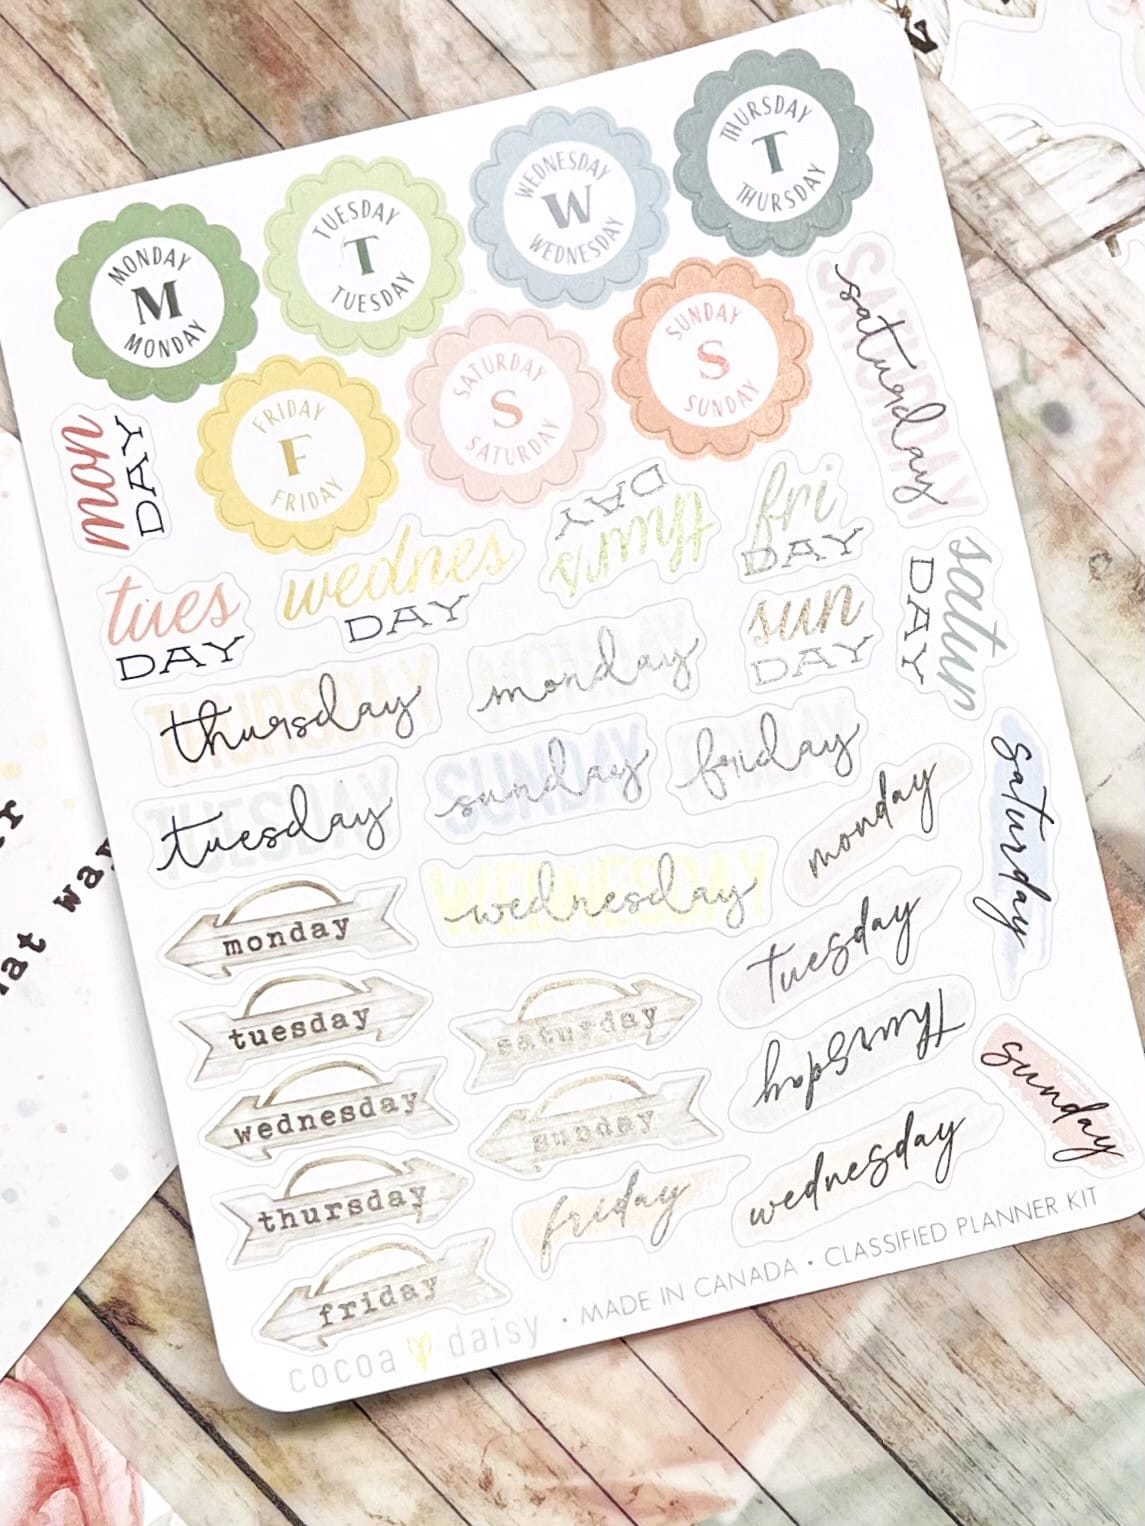 MONDAY
M
MONDAY
TUESDAY
T
TUESDAY
WEDNESDAY
W
WEDNESDAY
THURSDAY
T
THURSDAY
FRIDAY
F
FRIDAY
SATURDAY
S
SATURDAY
SUNDAY
S
SUNDAY
SATURDAY
saturday
mon
DAY
tues
DAY
wednes
DAY
thurs
DAY
fri
DAY
sun
DAY
satur
DAY
THURSDAY
thursday
MONDAY
monday
TUESDAY
tuesday
SUNDAY
sunday
friday
WEDNESDAY
wednesday
monday
tuesday
thursday
wednesday
saturday
sunday
friday
monday
tuesday
wednesday
thursday
friday
saturday
sunday
cocoa daisy · MADE IN CANADA · CLASSIFIED PLANNER KIT